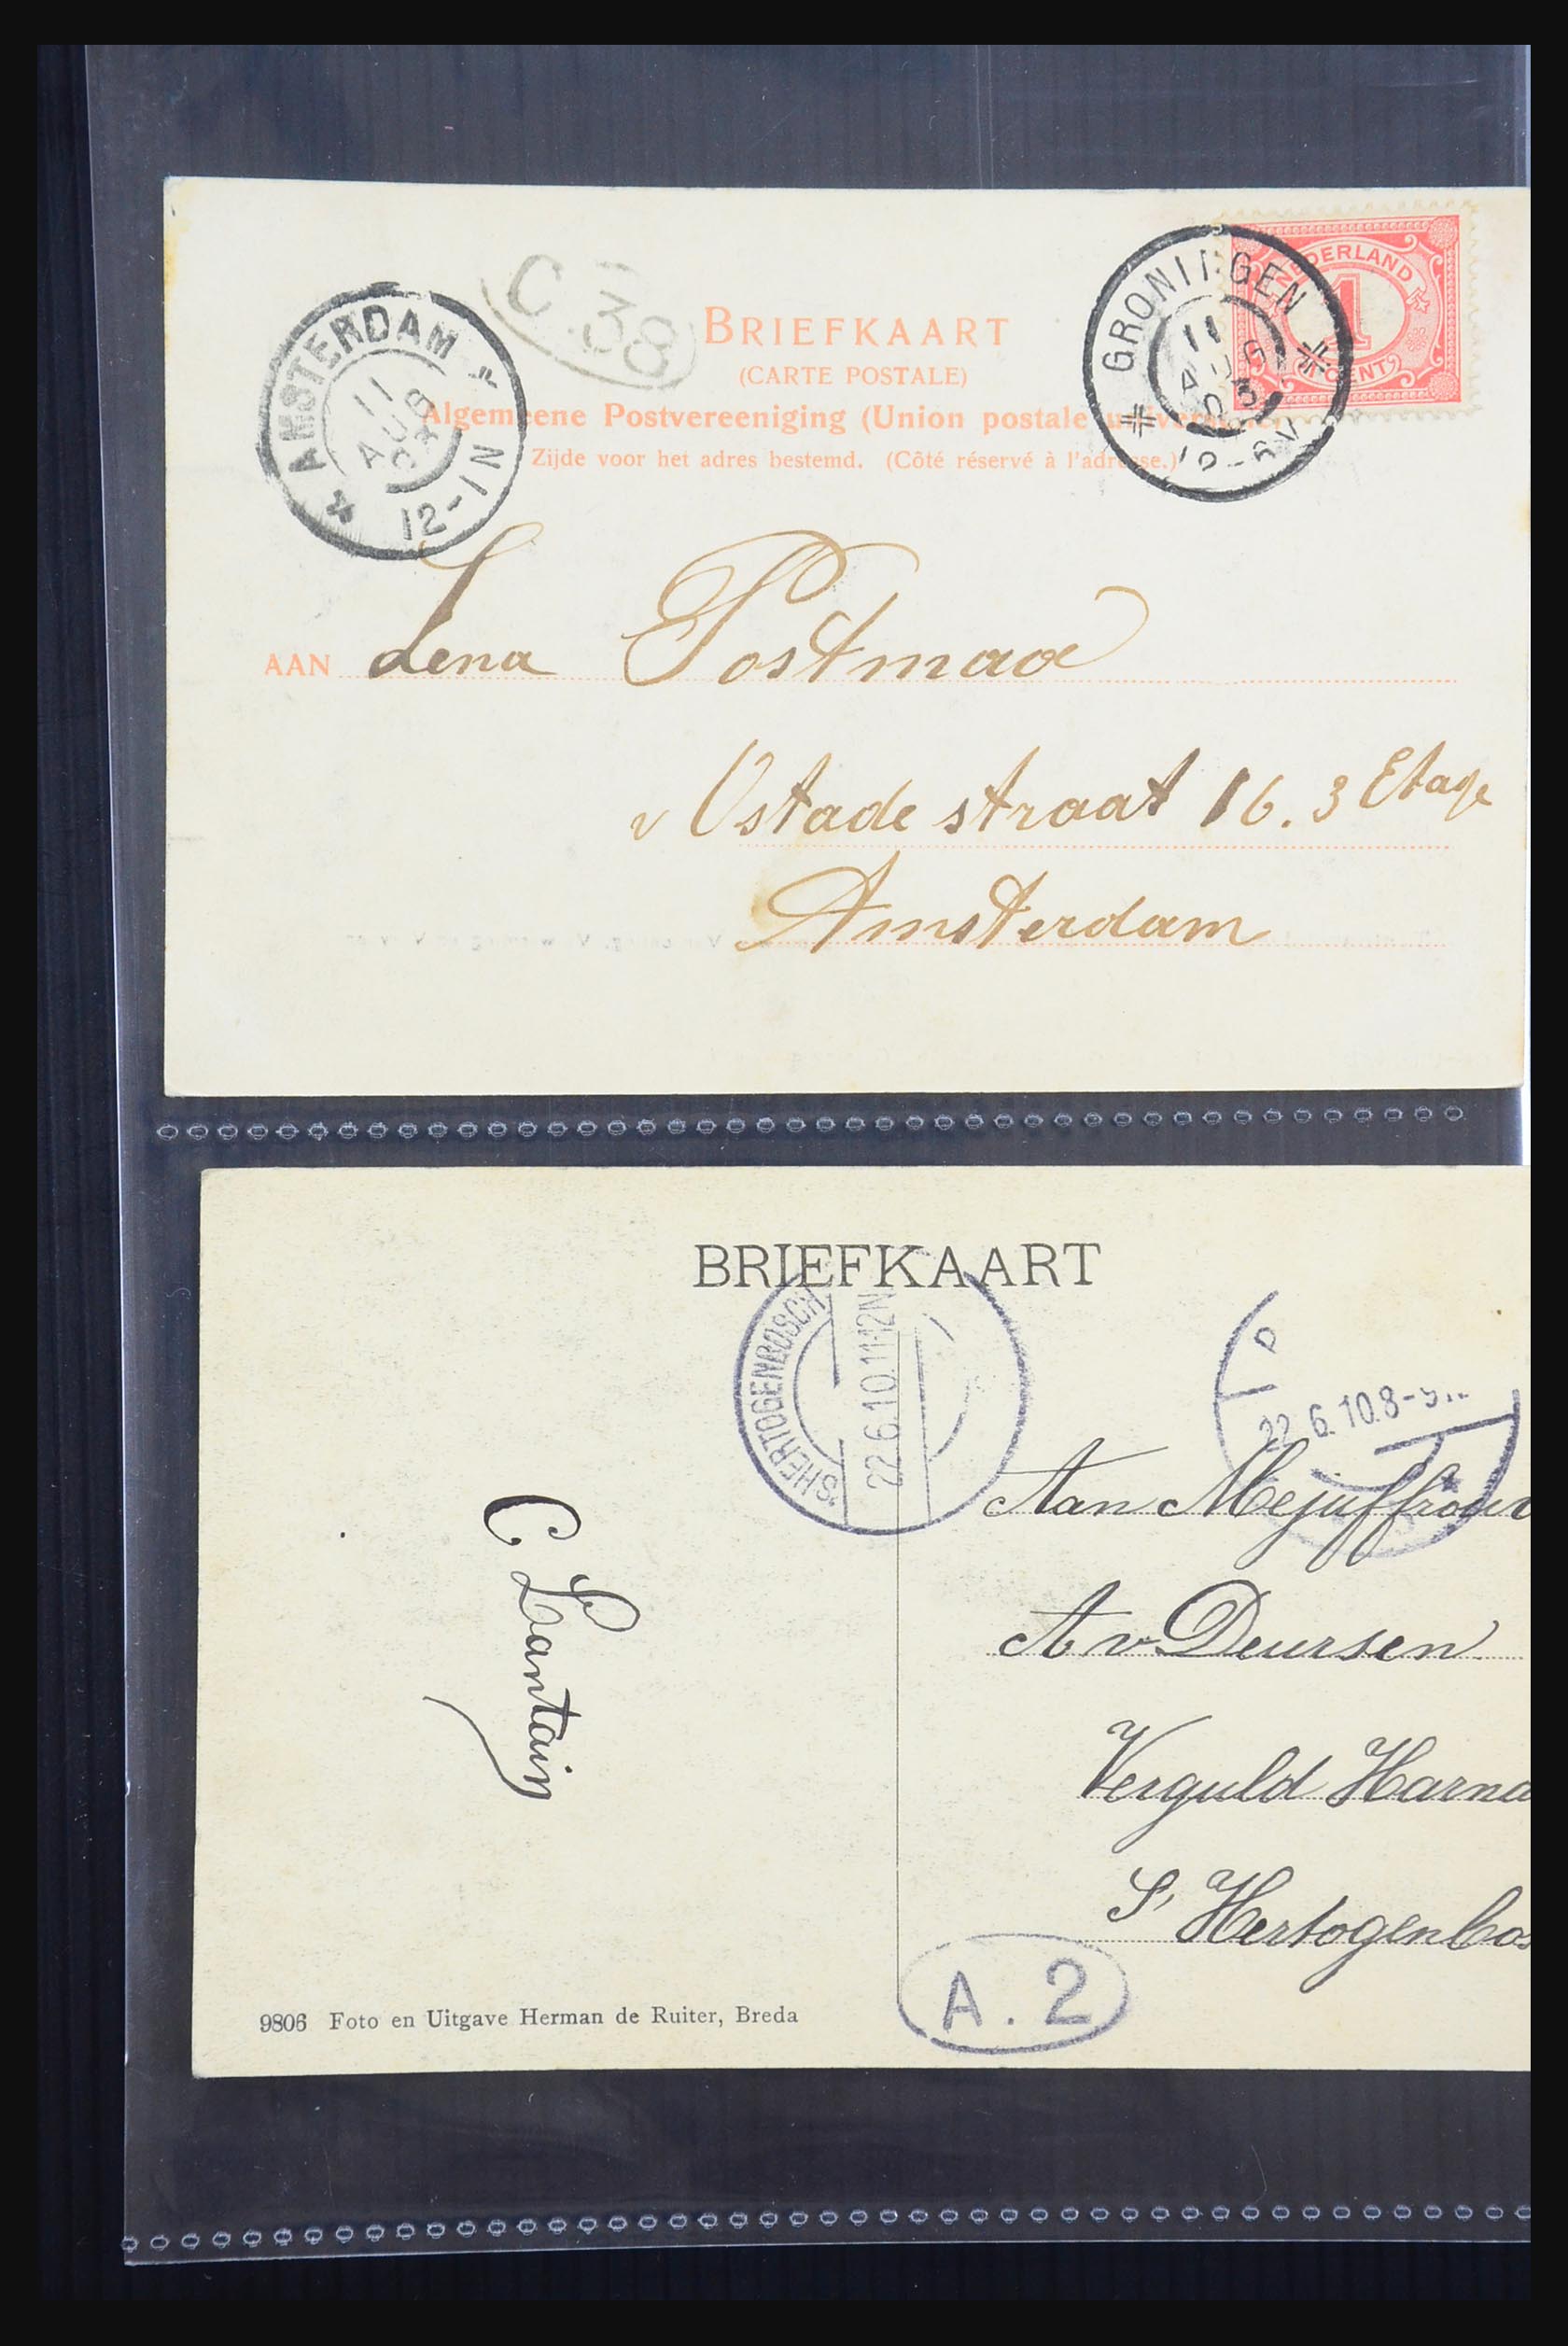 C. 38
NEDERLAND
1
CENT
GRONINGEN
11
AUG
03
AMSTERDAM
11
AUG
12-1N
BRIEFKAART
(CARTE POSTALE)
Algemeene Postvereeniging (Union postale universelle)
Zijde voor het adres bestemd. (Côté réservé à l'adresse.)
AAN Lena Postmaa
v Ostade straat 16. 3 Etage
Amsterdam
BRIEFKAART
'SHERTOGENBOSCH
22.6.10.11-12N
22.6.10.8-9
Aan Mejuffrouw
A v Deursen
Verguld Harna
S' Hertogenbos
C Lantain
A. 2
9806 Foto en Uitgave Herman de Ruiter, Breda